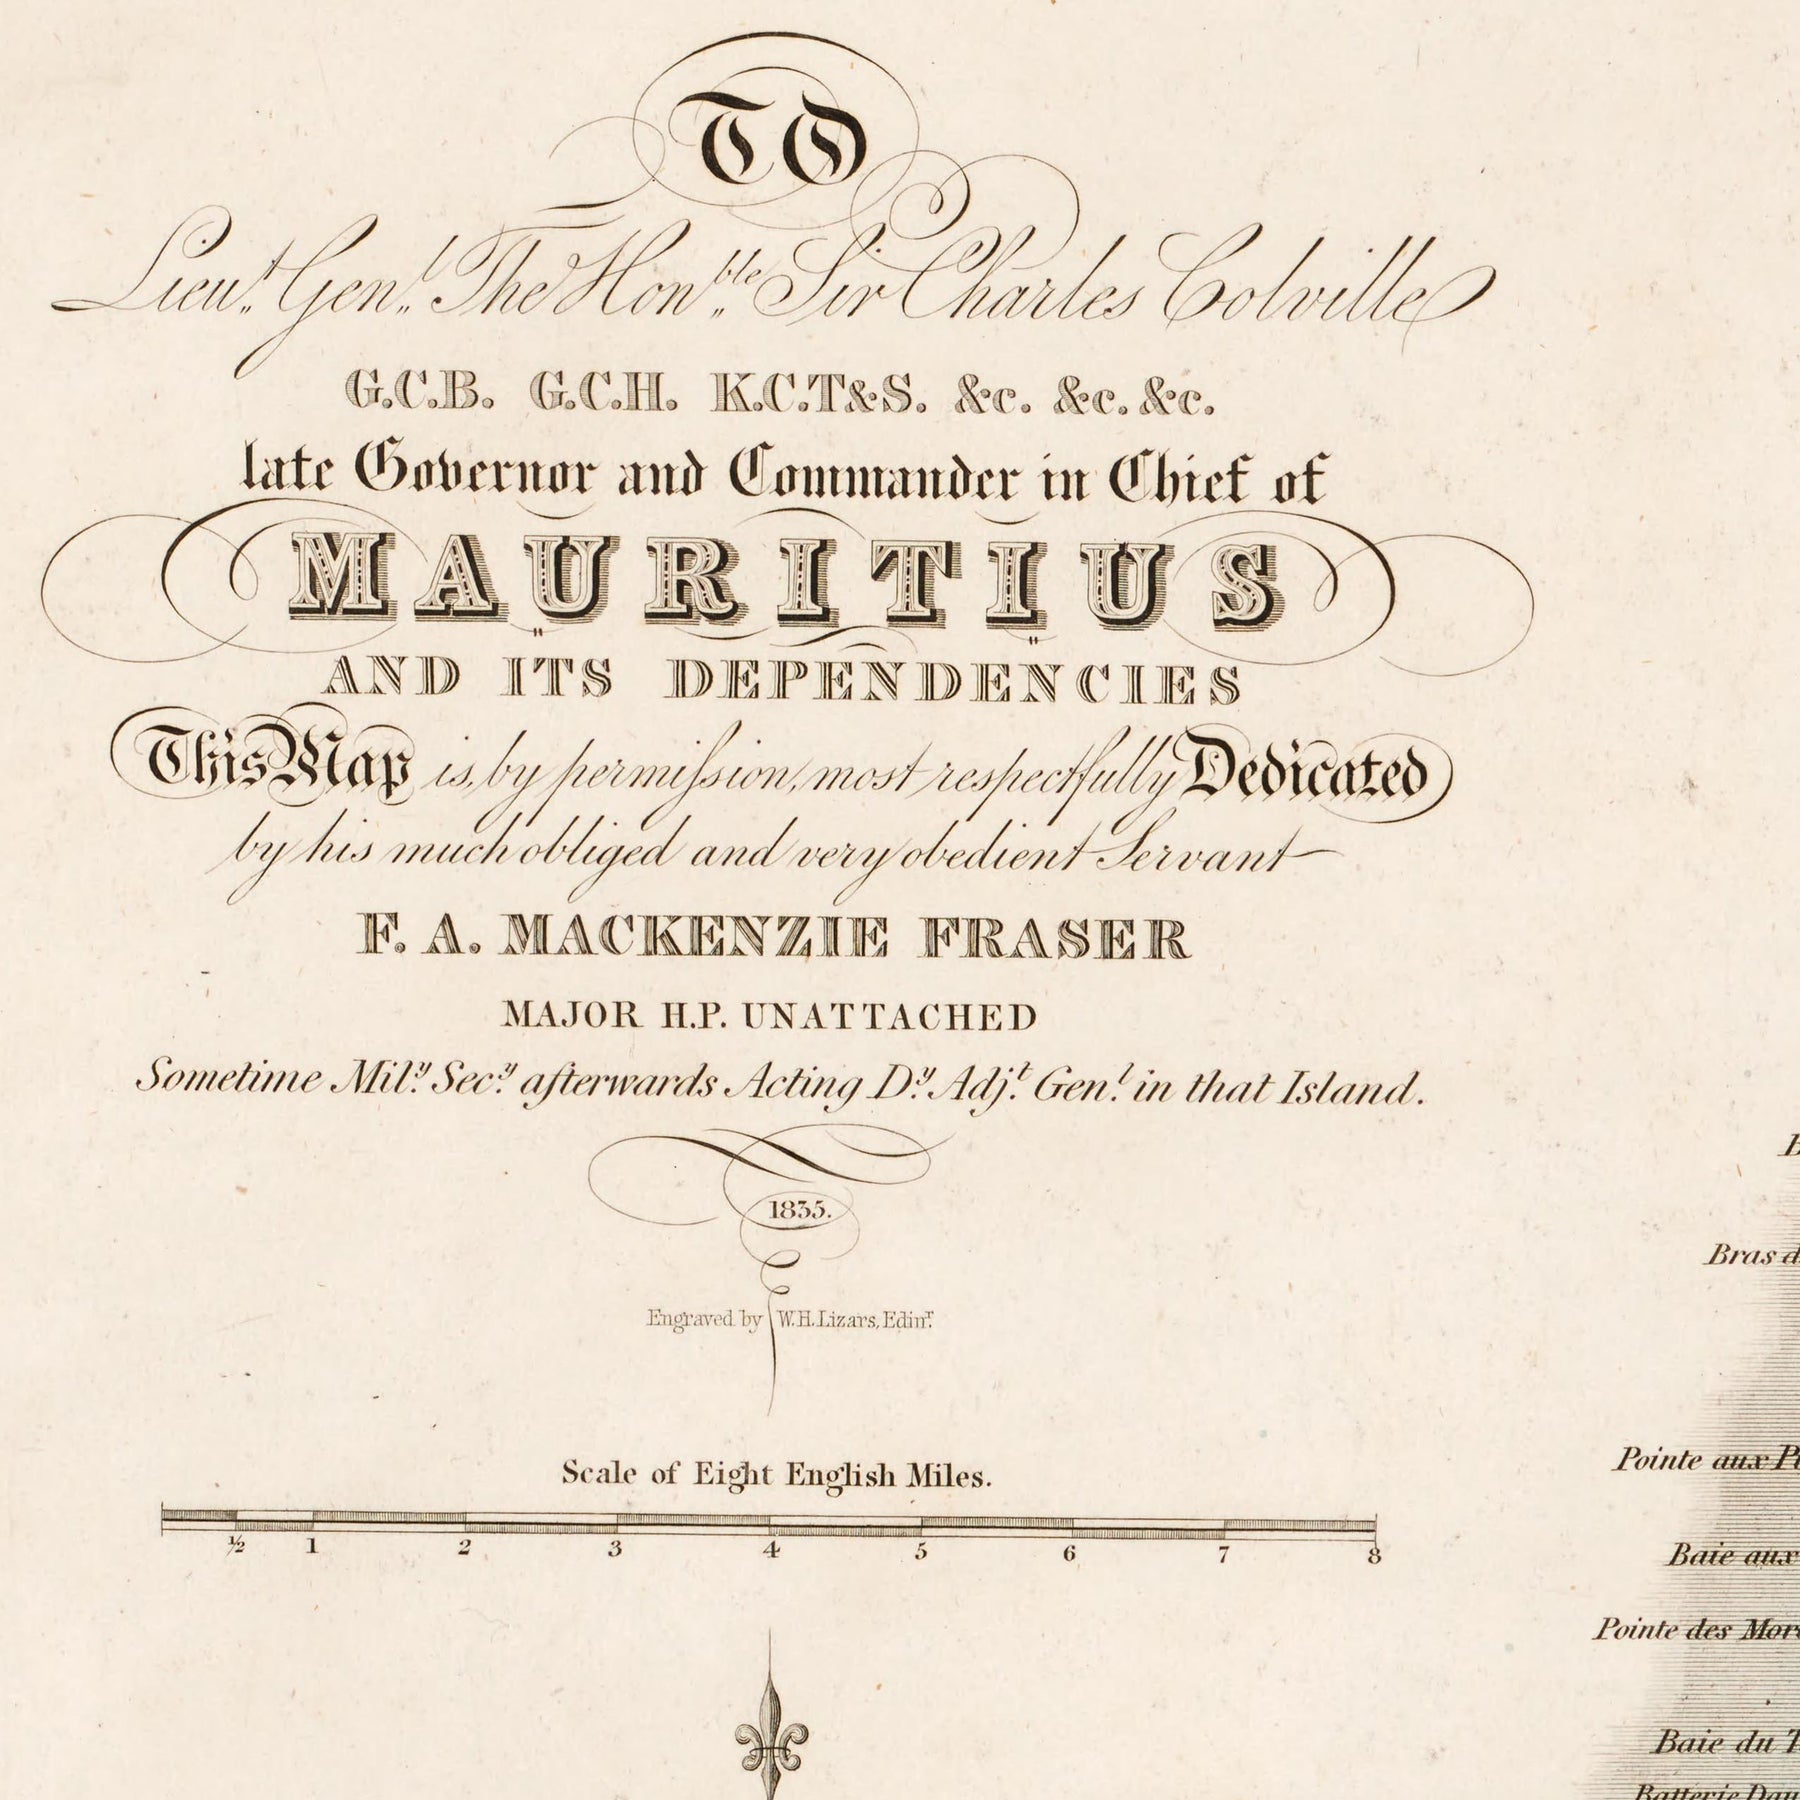 TO
Lieut. Genl. The Honble. Sir Charles Colville
G.C.B. G.C.H. K.C.T&S. &c. &c. &c.
late Governor and Commander in Chief of
MAURITIUS
AND ITS DEPENDENCIES
This Map is, by permission, most respectfully Dedicated
by his much obliged and very obedient Servant
F. A. MACKENZIE FRASER
MAJOR H.P. UNATTACHED
Sometime Mily. Secy. afterwards Acting Dy. Adjt. Genl. in that Island.
1835.
Engraved by W.H. Lizars, Edinr.
Bras d
Scale of Eight English Miles.
Pointe aux
½ 1 2 3 4 5 6 7 8
Baie aux
Pointe des
Baie du
Batterie